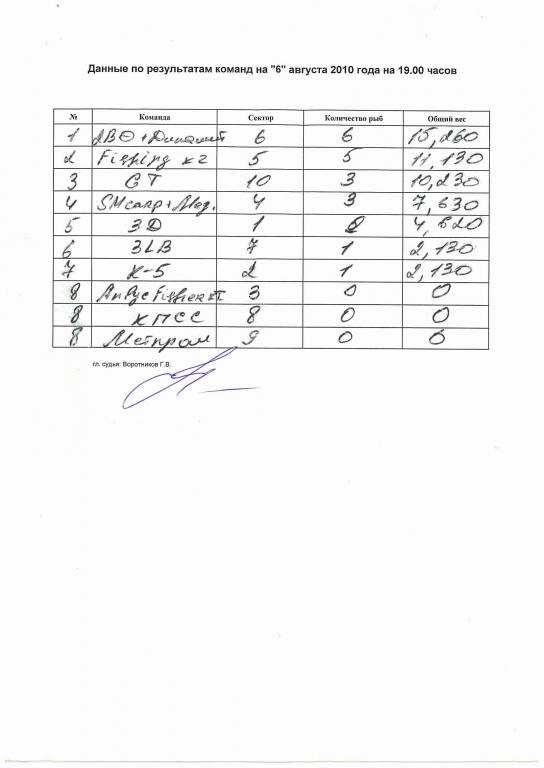 Данные по результатам команд на "6" августа 2010 года на 19.00 часов
№ Команда Сектор Количество рыб Общий вес
1 2ВО+Dинамит 6 6 15,260
2 Fishing кz 5 5 11,130
3 GT 10 3 10,230
4 SMcarp+Mag. 4 3 7,630
5 3D 1 2 4,620
6 3LB 7 1 2,130
7 К-5 2 1 2,130
8 3 0 0
8 КПСС 8 0 0
8 Метпром 9 0 0
гл. судья: Воротников Г.В.